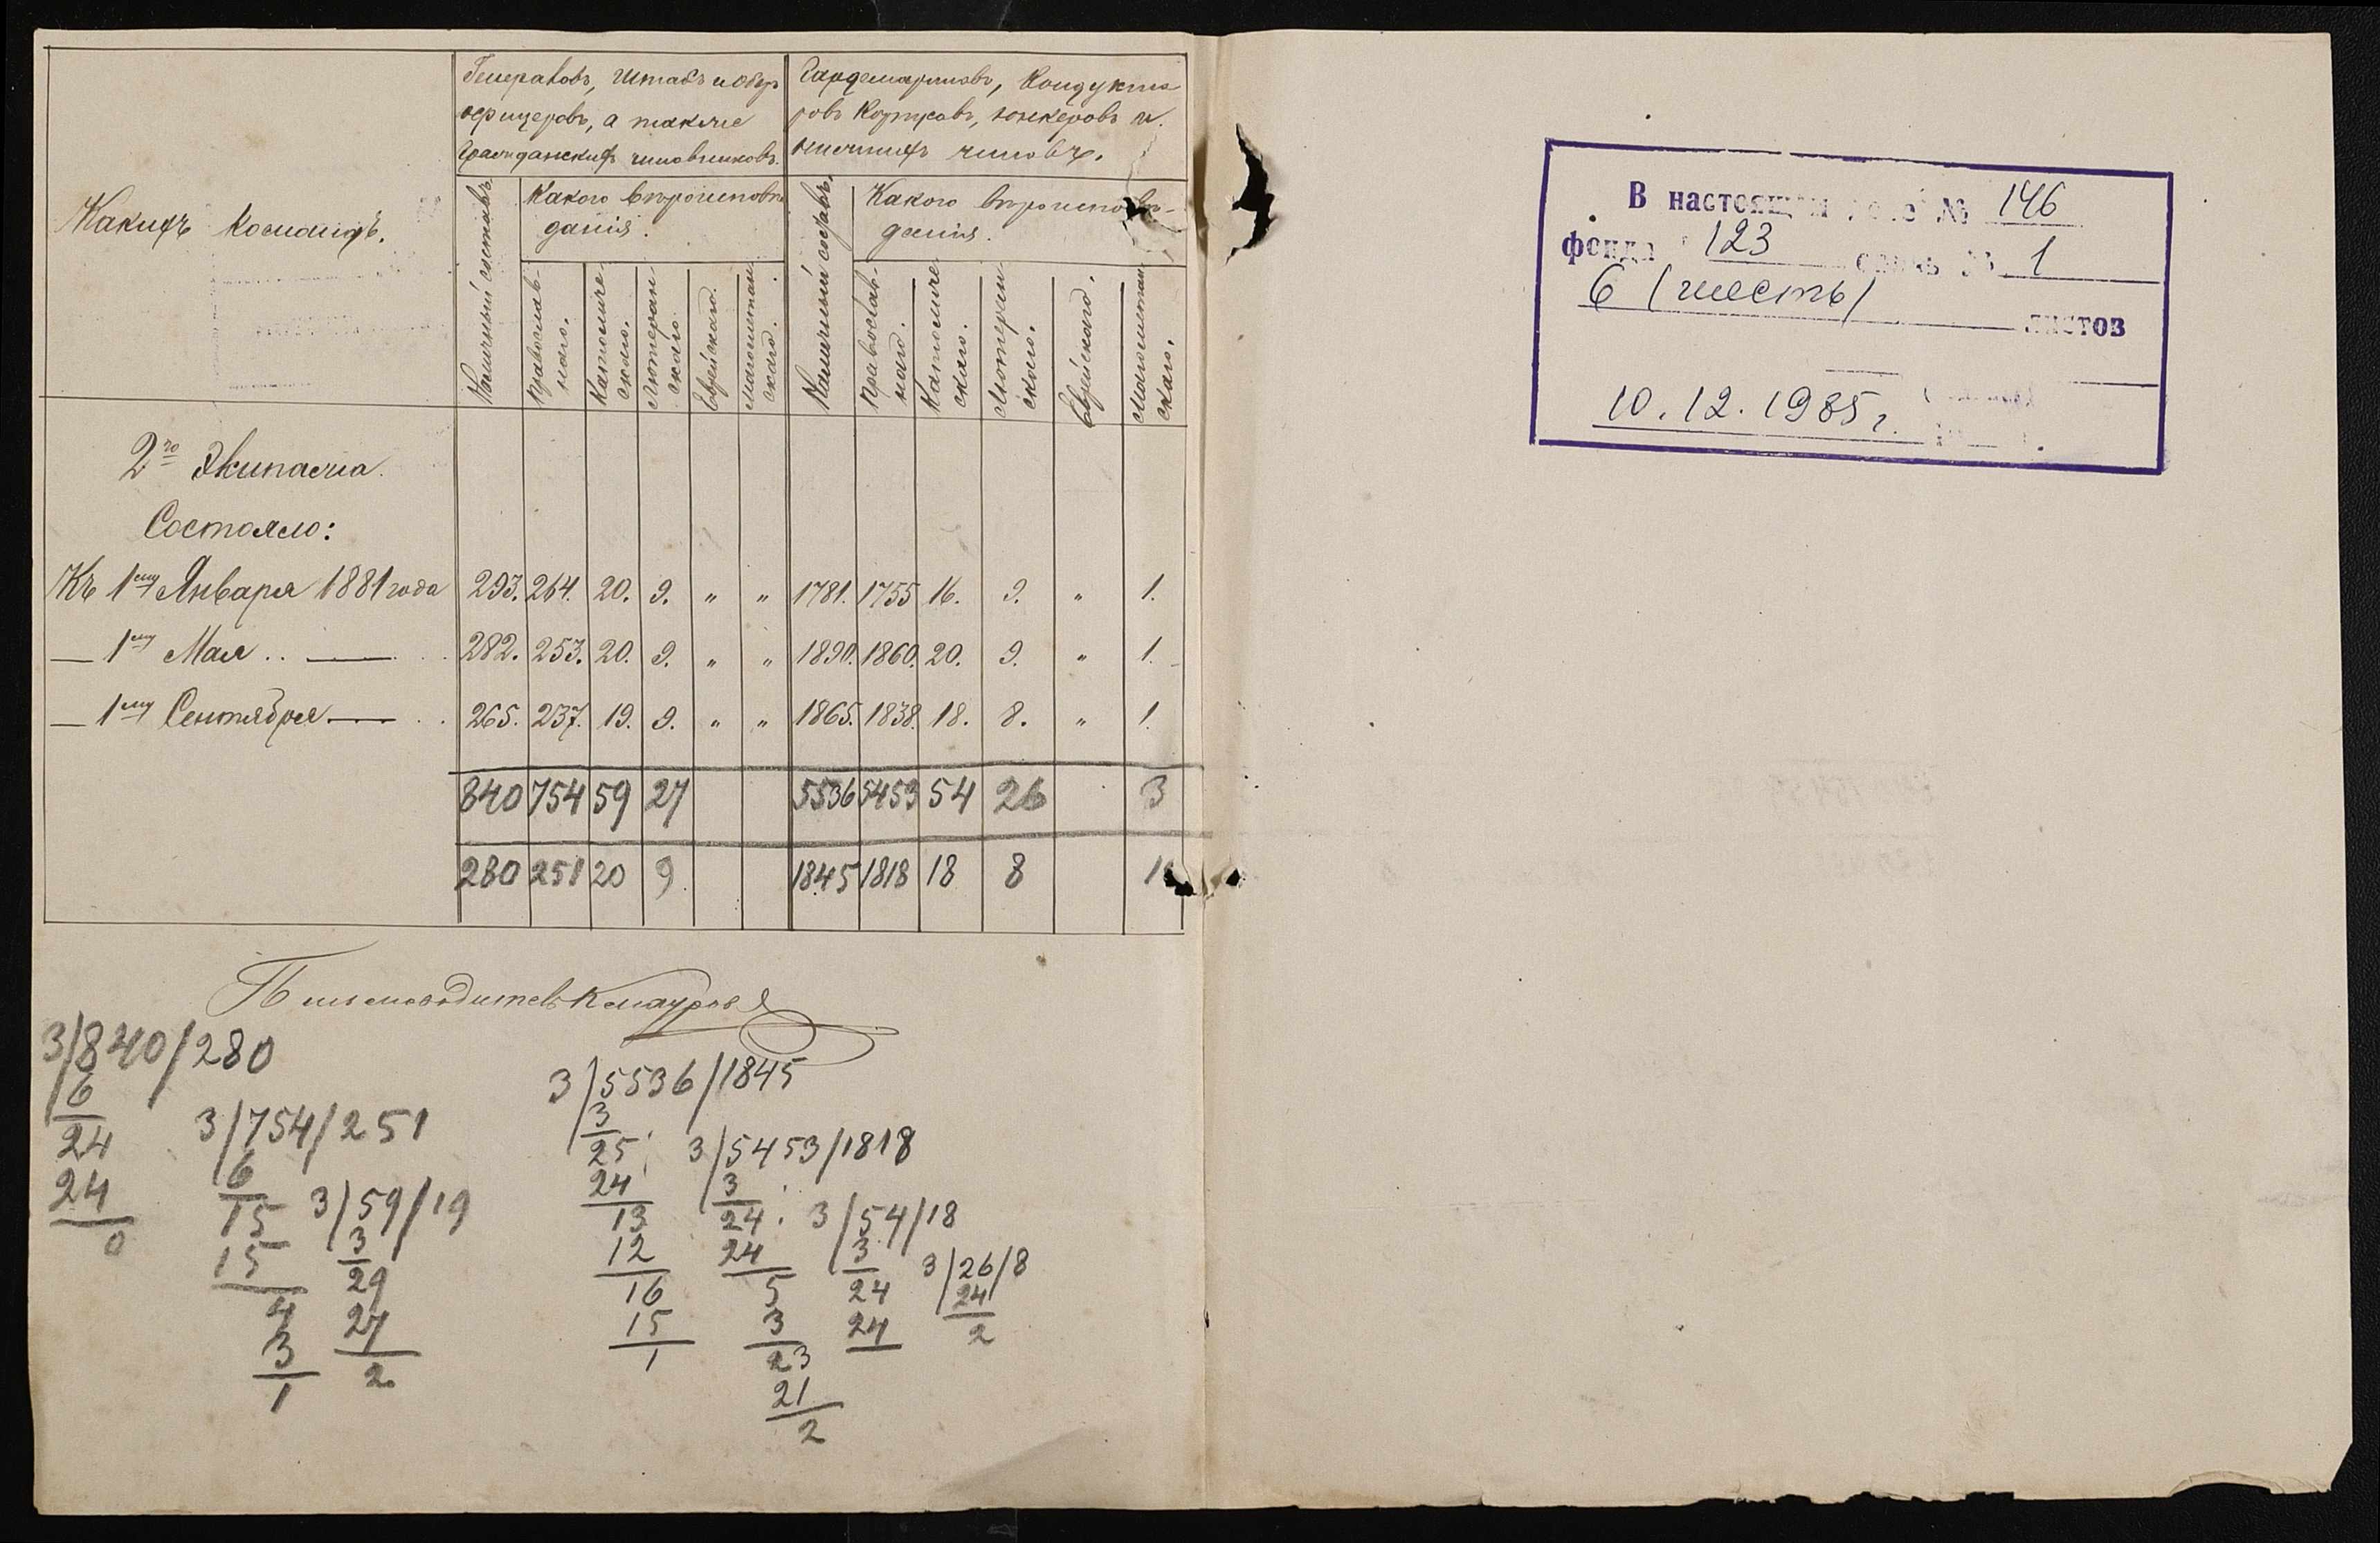 Генераловъ, Штабъ и Оберъ
офицеровъ, а также
Гражданскихъ чиновниковъ.
Гардемариновъ, Кондукто
ровъ Корпусовъ, юнкеровъ и
нижнихъ чиновъ.
Какихъ командъ.
Наличный составъ.
Какого вѣроисповѣ
данія.
Православ-
наго.
Католиче-
скаго.
Лютеран-
скаго.
Еврейскаго.
Магометан-
скаго.
Наличный составъ.
Какого вѣроисповѣ-
данія.
Православ-
наго.
Католиче-
скаго.
Лютеран-
скаго.
Еврейскаго.
Магометан-
скаго.
2го Экипажа.
Состояло:
Къ 1му Января 1881 года 293. 264. 20. 9. „ „ 1781. 1755 16. 9. „ 1.
— 1му Мая .. — 282. 253. 20. 9. „ „ 1890. 1860. 20. 9. „ 1.
— 1му Сентября — 265. 237. 19. 9. „ „ 1865. 1838. 18. 8. „ 1.
840 754 59 27 5536 5453 54 26 3
280 251 20 9 1845 1818 18 8 1
Письмоводитель
3/840/280
6
24
24
0
3/754/251
6
15
15
4
3
1
3/59/19
3
29
27
2
3/5536/1845
3
25
24
13
12
16
15
1
3/5453/1818
3
24
24
5
3
23
21
2
3/54/18
3
24
24
3/26/8
24
2
В настоящем деле № 146
фонда 123 опись № 1
6 (шесть)
листов
10.12.1985 г.